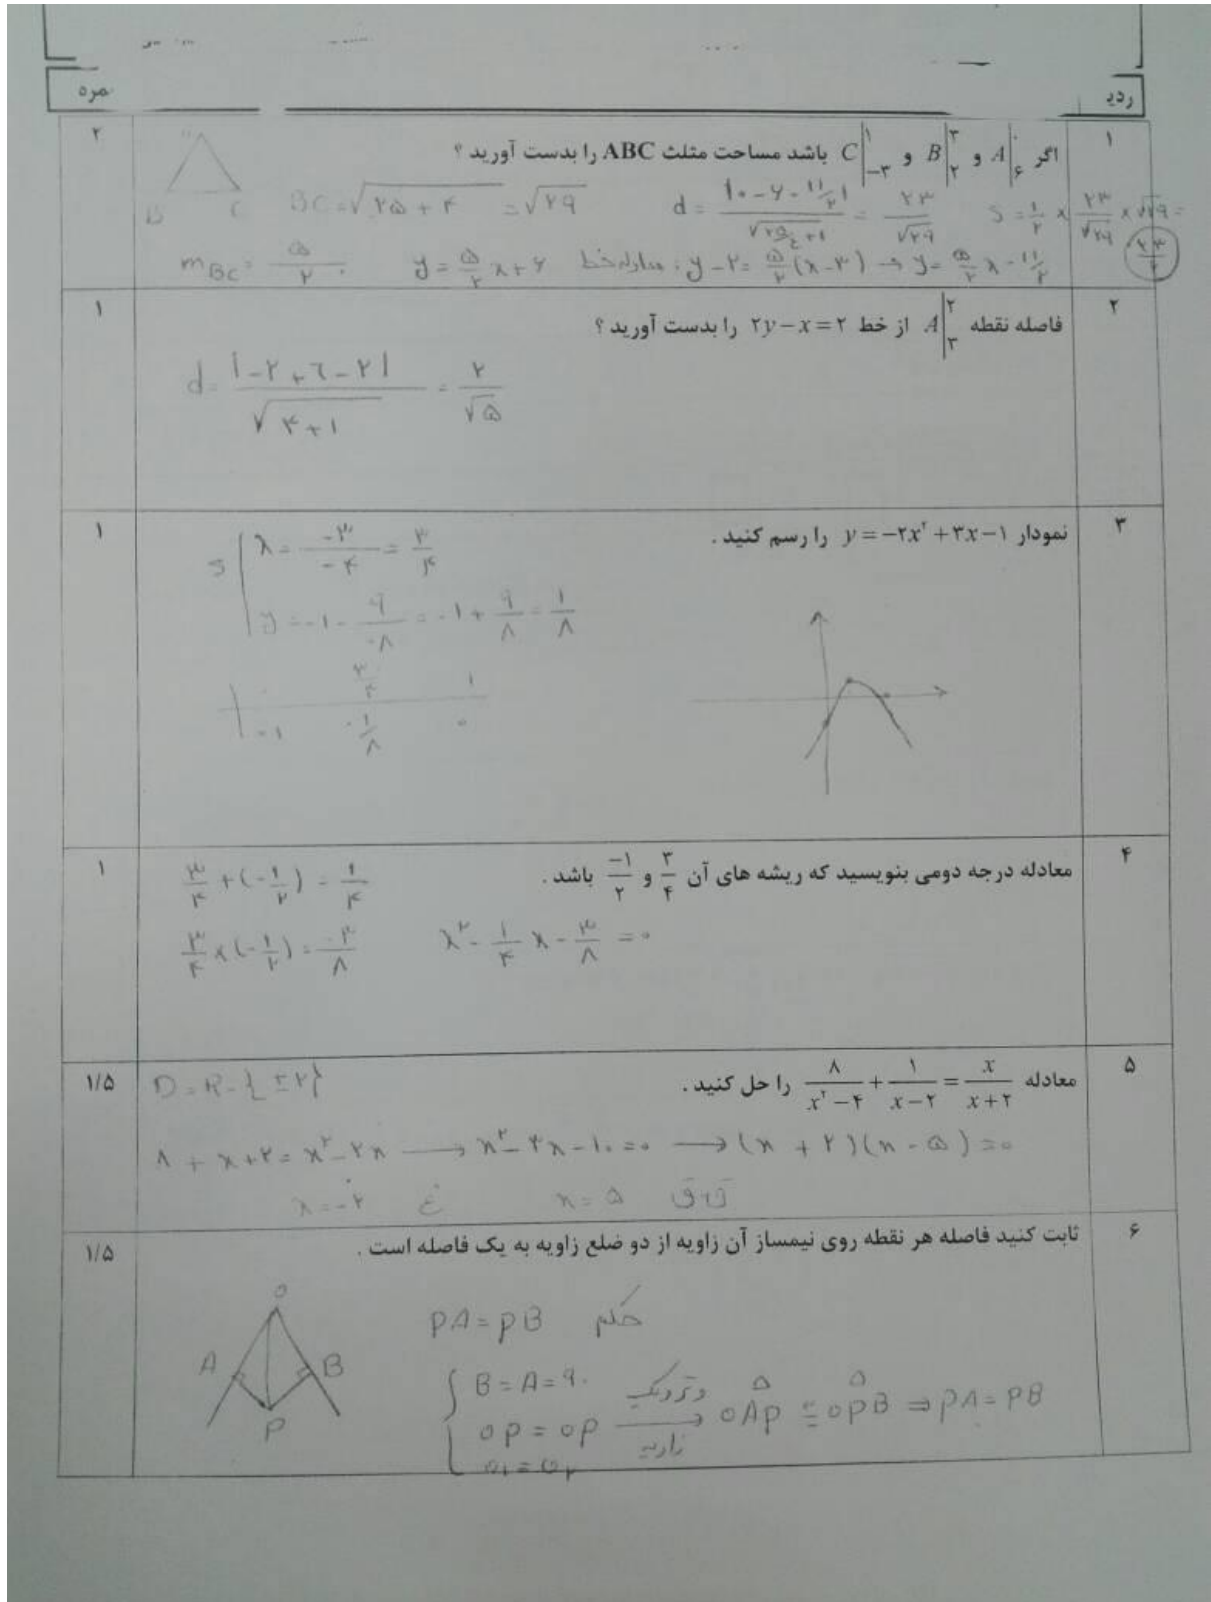 ردیـ مره
۱ اگر A|۰ ۶ و B|۳ ۲ و C|۱ −۳ باشد مساحت مثلث ABC را بدست آورید ؟ ۲
B C BC = √۲۵ + ۴ = √۲۹ d = |۰ - ۶ - ۱۱/۲| / √۲۵/۴ + ۱ = ۲۳/√۲۹ S = ۱/۲ × ۲۳/√۲۹ × √۲۹ = ۲۳/۲
m BC = ۵/۲ y = ۵/۲ x + ۶ معادله خط : y - ۲ = ۵/۲ (x - ۳) → y = ۵/۲ x - ۱۱/۲
۲ فاصله نقطه A|۲ ۳ از خط ۲y − x = ۲ را بدست آورید ؟ ۱
d = |-۲ + ۶ - ۲| / √۴ + ۱ = ۲/√۵
۳ نمودار y = −۲x² + ۳x − ۱ را رسم کنید . ۱
S x = -۳/-۴ = ۳/۴
y = -۱ - ۹/-۸ = -۱ + ۹/۸ = ۱/۸
۰ ۳/۴ ۱
-۱ ۱/۸ ۰
۴ معادله درجه دومی بنویسید که ریشه های آن ۳/۴ و −۱/۲ باشد . ۱
۳/۴ + (-۱/۲) = ۱/۴
۳/۴ × (-۱/۲) = -۳/۸ x² - ۱/۴ x - ۳/۸ = ۰
۵ معادله ۸/(x² − ۴) + ۱/(x − ۲) = x/(x + ۲) را حل کنید . ۱/۵
D = R - { ±۲}
۸ + x + ۲ = x² - ۲x → x² - ۳x - ۱۰ = ۰ → (x + ۲)(x - ۵) = ۰
x = -۲ غ x = ۵ ق ق
۶ ثابت کنید فاصله هر نقطه روی نیمساز آن زاویه از دو ضلع زاویه به یک فاصله است . ۱/۵
O
PA = PB حکم
A B P
B = A = ۹۰
OP = OP وتر و یک زاویه → OAP ≅ OPB ⇒ PA = PB
O۱ = O۲